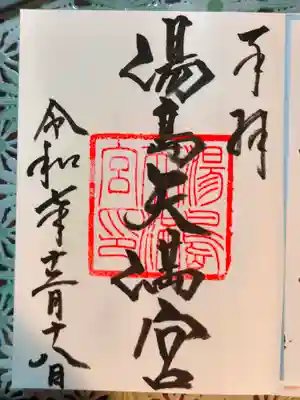 奉拝
湯島天満宮
令和年十二月十八日
湯島天満宮印